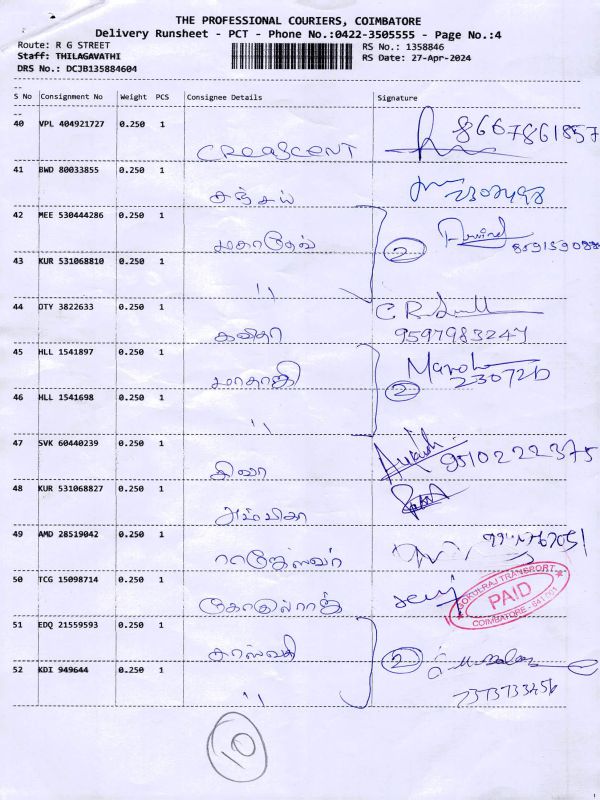 THE PROFESSIONAL COURIERS, COIMBATORE
Delivery Runsheet - PCT - Phone No.:0422-3505555 - Page No.:4
Route: R G STREET RS No.: 1358846
Staff: THILAGAVATHI RS Date: 27-Apr-2024
DRS No.: DCJB135884604
S No Consignment No Weight PCS Consignee Details Signature
40 VPL 404921727 0.250 1 CREASCENT 8667861857
41 BWD 80033855 0.250 1 சஞ்சய்
42 MEE 530444286 0.250 1 மகாதேவ் 2
43 KUR 531068810 0.250 1 "
44 OTY 3822633 0.250 1 கவிதா 9597983247
45 HLL 1541897 0.250 1 மாதாஜி 2
46 HLL 1541698 0.250 1 "
47 SVK 60440239 0.250 1 8510222375
48 KUR 531068827 0.250 1 அம்பிகா
49 AMD 28519042 0.250 1 ராஜேஸ்வர்
50 TCG 15098714 0.250 1 கோகுல்ராஜ்
GOKULRAJ TRANSPORT
PAID
COIMBATORE - 641 001
51 EDQ 21559593 0.250 1 2
52 KDI 949644 0.250 1 " 7373733456
10